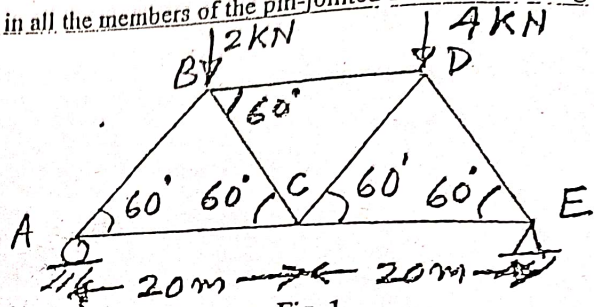 in all the members of the pin-jointed
2KN
4KN
B
D
60°
60° 60° C 60° 60°
A
E
20m 20m